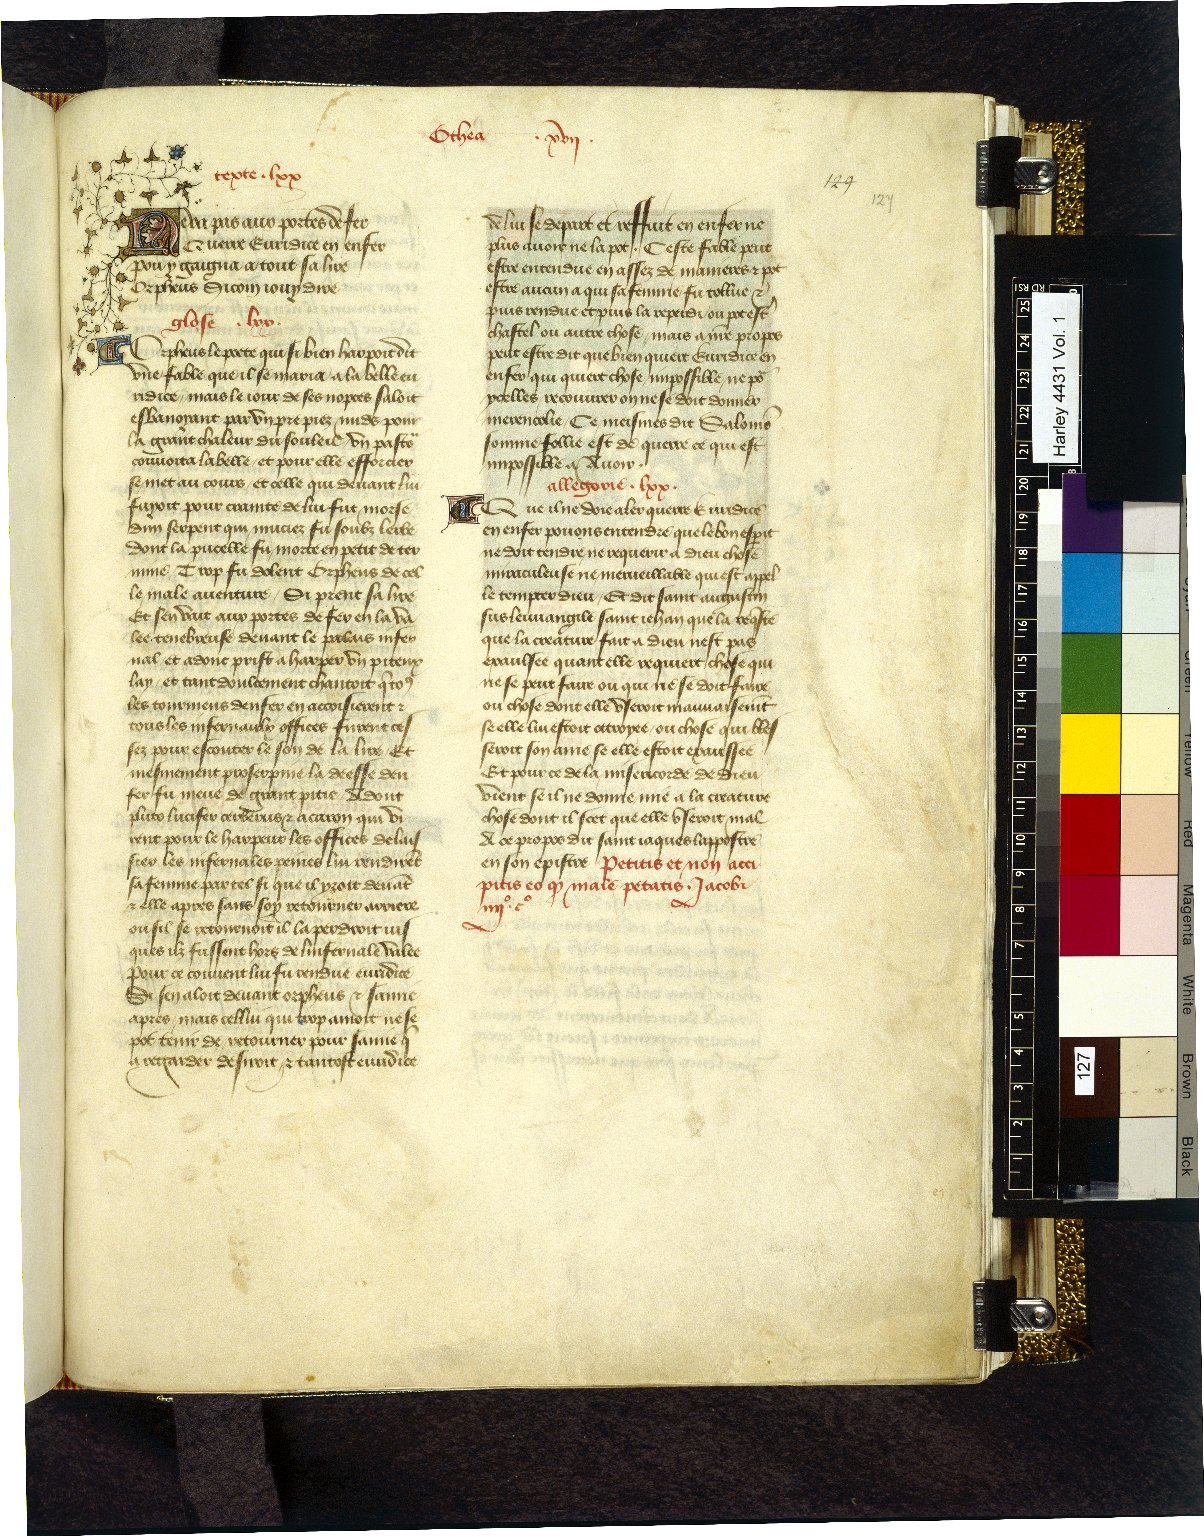 Othea . xvii .
129
127
texte . lxx
Ne va pas aux portes d'enfer
Querre Euridice en enfer
Pou y gaigna a tout sa lire
Orpheus Si com i'ouy dire
glose . lxx .
Orpheus le poete qui si bien harpoit dit
une fable que il se maria a la belle eu
ridice / mais le iour de ses nopces s'aloit
esbanoyant par un pre piez nuds pour
la grant chaleur du souleil Un pastour
couvoita la belle / et pour elle efforcier
se met au cours / et celle qui devant lui
fuyoit pour crainte de lui fut morse
d'un serpent qui muciez fu soubz l'erbe
dont la pucelle fu morte en petit de ter
mine . Trop fu dolent Orpheus de cel
le male aventure / Si prent sa lire
Et s'en vait aux portes de fer en la va
lee tenebreuse devant le palais infer
nal et adont prist a harper un piteux
lay / et tant doulcement chantoit que tous
les tourmens d'enfer en accoisierent et
tous les infernaulx offices furent ces
sez pour escouter le son de la lire Et
mesmement proserpine la deesse d'en
fer fu meue de grant pitie / Adont
pluto lucifer cerberus et acaron qui vi
rent pour le harpeur les offices delais
sier les infernales peines lui rendirent
sa femme par tel si que il yroit devant
et elle apres sans soy retourner arriere
ou s'il se retournoit il la perdroit ius
ques ilz fussent hors de l'infernale valee
Pour ce couvent lui fu rendue euridice
Si s'en aloit devant orpheus et s'amie
apres / mais cellui qui trop amoit ne se
pot tenir de retourner pour s'amie que
a regarder desiroit / et tantost euridice
de lui se depart et reffuit en enfer ne
plus avoir ne la pot . Ceste fable peut
estre entendue en assez de manieres et pot
estre aucun a qui sa femme fu tollue et
puis rendue et puis la reperdi / ou pot estre
chastel ou autre chose / mais a nostre propos
peut estre dit que bien quiert Euridice en
enfer qui quiert chose impossible / ne pour
ycelles recouvrer on ne se doit donner
merencolie Ce meismes dit Salomon
somme follie est de querre ce qui est
impossible a Avoir .
allegorie . lxx .
Que il ne doie aler querre Euridice
en enfer pouons entendre que le bon esperit
ne doit tendre ne requerir a dieu chose
miraculeuse ne merveillable qui est appel
le tempter dieu . Et dit saint augustin
sus l'euvangile saint iehan que la requeste
que la creature fait a dieu n'est pas
exaulsee quant elle requiert chose qui
ne se peut faire ou qui ne se doit faire
ou chose dont elle useroit mauvaisement
se elle lui estoit ottroyee / ou chose qui bles
seroit son ame se elle estoit exaussee
Et pour ce de la misericorde de Dieu
vient se il ne donne mie a la creature
chose dont il scet que elle useroit mal
A ce propos dit saint iaques l'appostre
en son epistre Petitis et non acci
pitis eo quod male petatis . Jacobi
iiii° . c°
Harley 4431 Vol. 1
127
Cyan
Green
Yellow
Red
Magenta
White
Brown
Black